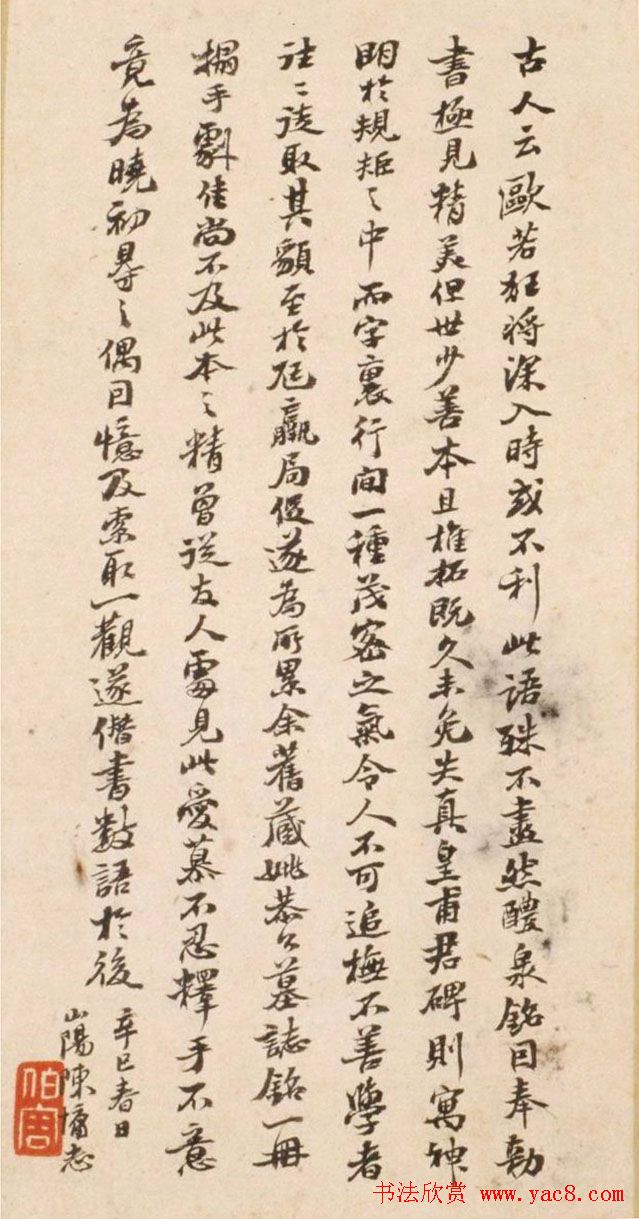 古人云歐若狂將深入時或不利此語殊不盡然醴泉銘因奉勅
書極見精美但世少善本且椎拓既久未免失真皇甫君碑則寓神
明於規矩之中而字裏行間一種茂密之氣令人不可追撫不善學者
往〻徒取其貌至於尫羸局促遂為所累余舊藏姚恭公墓誌銘一冊
搨手劇佳尚不及此本之精曾從友人處見此愛慕不忍釋手不意
竟為曉初得之偶回憶及索取一觀遂僭書數語於後
辛巳春日
山陽陳墉志
伯
书法欣赏 www.yac8.com